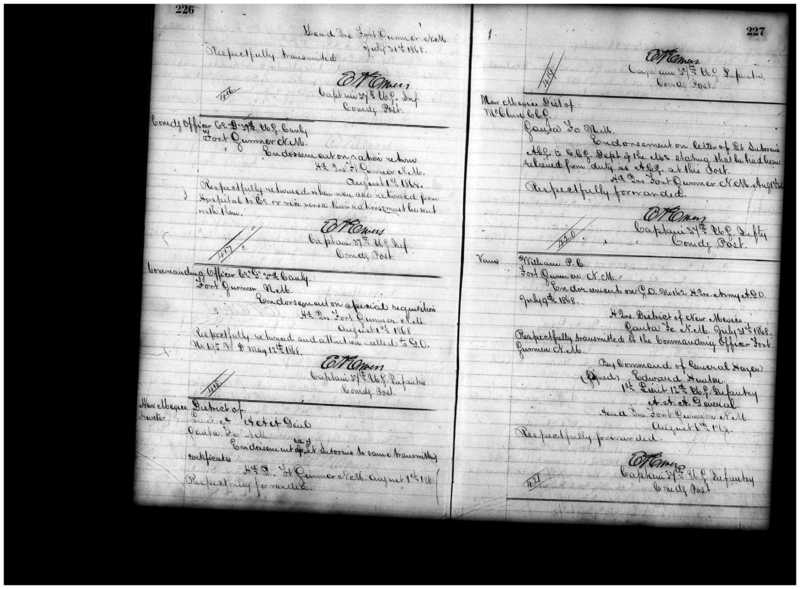 226
Head Qrs Fort Sumner N.M.
July 31st 1868.
Respectfully transmitted
Captain 37th U.S. Inf
Comdg Post.
416
Comdg Officer Co. D 37th U.S. Cavly
Fort Sumner N.M.
Endorsement on ration return
Hd Qrs Ft Sumner N.M.
August 1st 1868.
Respectfully returned when men are returned from
hospital to Co. or vice versa their rations must be sent
with them.
Captain 37th U.S. Inf
Comdg Post
417
Commanding Officer Co. Cavly
Fort Sumner N.M.
Endorsement on special requisition
Hd Qrs Fort Sumner N.M.
August 1st 1868
Respectfully returned and attention called to G.O.
May 12th 1868.
Captain 37th U.S. Infantry
Comdg Post
418
New Mexico District of
A.A.A. Genl
Santa Fe N.M.
Endorsement of to same transmitting
certificate
Hd Q. Ft Sumner N.M. August 1st
Respectfully forwarded.
227
Captain 37th U.S. Infantry
Comdg Post.
419
New Mexico Dist of
McClure C.S.
Santa Fe N.M.
Endorsement on letter of Lt
stating that he had been
relieved from duty as at this Post.
Hd Qrs Fort Sumner N.M. Aug 1st
Respectfully forwarded.
Captain 37th U.S. Infty
Comdg Post.
420
William P. C.
Fort Sumner N.M.
Endorsement on G.O. Hd Qrs Army A.G.O.
July 9th 1868.
Hd Qrs District of New Mexico
Santa Fe N.M. July 31st 1868.
Respectfully transmitted to the Commanding Officer Fort
Sumner N.M.
By Command of General
(Signed) Edward Hunter
1st Lieut 12th U.S. Infantry
A.A.A. General
Head Qrs Fort Sumner N.M
August
Respectfully forwarded.
Captain 37th U.S. Infantry
Comdg Post
421